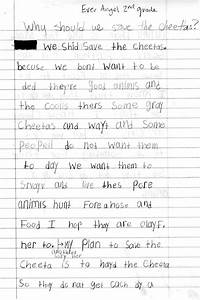 Ever Angel 2nd grade
Why should we save the cheetas?
We Shid Save the Cheetas.
becuse we bont want to be
ded they're good animis and
the Coolis thers Some gray
Cheetas and wayt and Some
peopeil do not want them
to day we want them to
and live thes pore
animis hunt Fore a hose and
Food I hop they are
her to. My plan to Save the
Cheeta is to hard the Cheeta
So they do not get cach by a